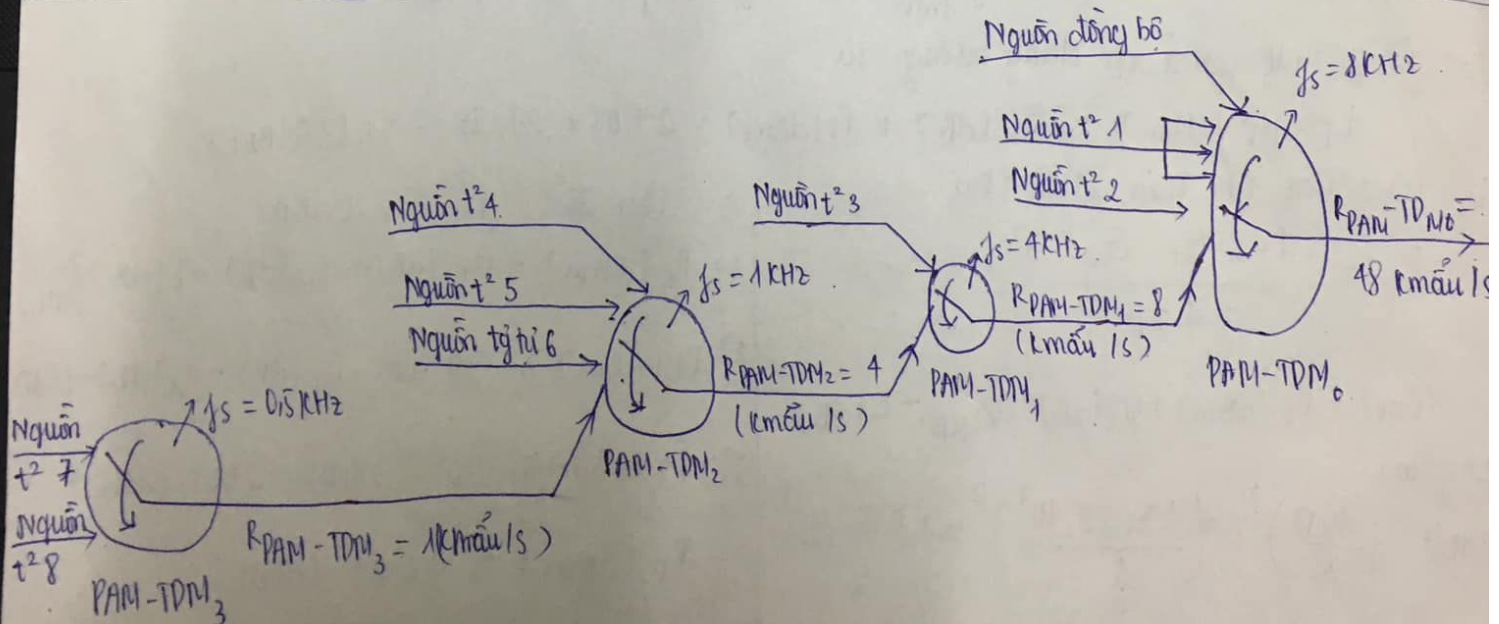 Nguồn đồng bộ
fs = 8KHz
Nguồn t² 1
Nguồn t² 2
RPAM-TDM0 =
48 kmẫu/s
PAM-TDM0
Nguồn t² 3
fs = 4KHz
RPAM-TDM1 = 8
(kmẫu/s)
PAM-TDM1
Nguồn t² 4
Nguồn t² 5
Nguồn tg tứ 6
fs = 1KHz
RPAM-TDM2 = 4
(kmẫu/s)
PAM-TDM2
Nguồn
t² 7
Nguồn
t² 8
fs = 0,5KHz
RPAM-TDM3 = 1(kmẫu/s)
PAM-TDM3